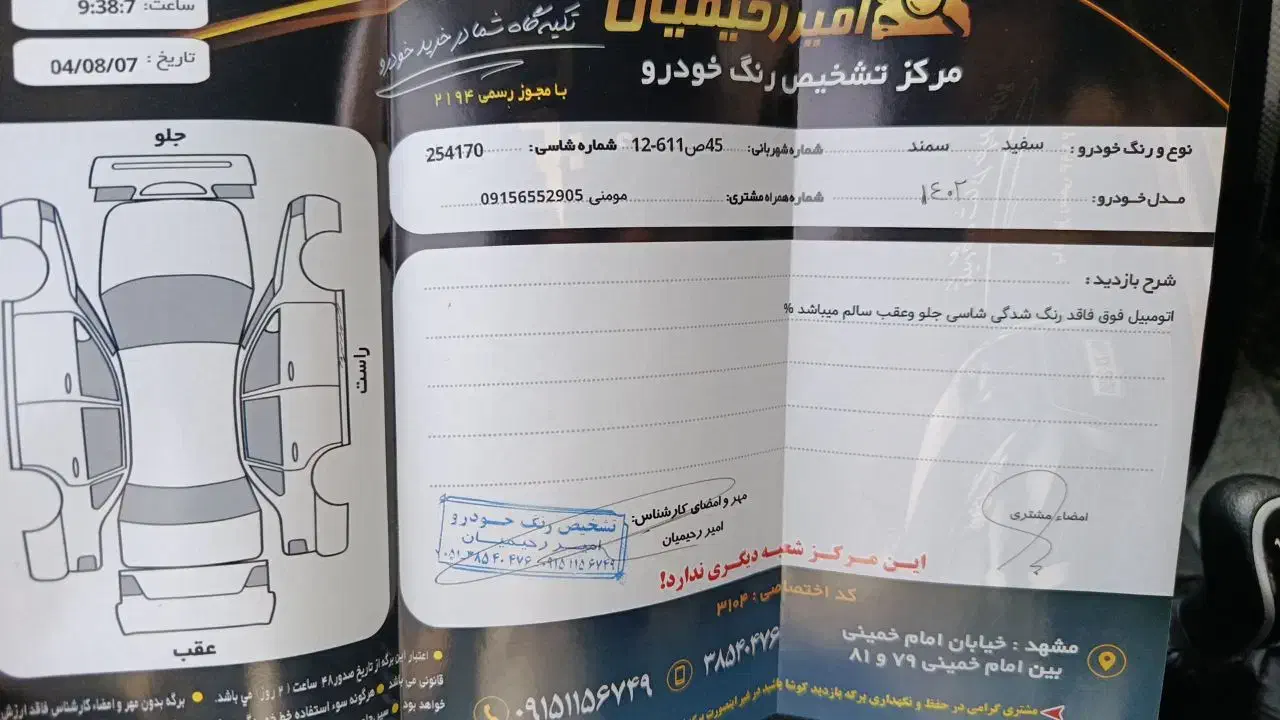 ساعت: 9:38:7
تاریخ : 04/08/07
امیر رحیمیان
تکیه گاه شما در خرید خودرو
مرکز تشخیص رنگ خودرو
با مجوز رسمی ۲۱۹۴
نوع و رنگ خودرو : سفید سمند شماره شهربانی: 45ص611-12 شماره شاسی: 254170
مدل خودرو : ۱۴۰۲ شماره همراه مشتری: مومنی 09156552905
شرح بازدید :
اتومبیل فوق فاقد رنگ شدگی شاسی جلو وعقب سالم میباشد %
جلو
راست
عقب
مهر و امضای کارشناس:
امیر رحیمیان
تشخیص رنگ خودرو
امیر رحیمیان
۰۵۱ ۳۸۵۴۰۴۷۶ ۰۹۱۵۱۱۵۶۷۴۹
امضاء مشتری
این مرکز شعبه دیگری ندارد!
کد اختصاصی : ۳۱۰۴
مشهد : خیابان امام خمینی
بین امام خمینی ۷۹ و ۸۱
۳۸۵۴۰۴۷۶
۰۹۱۵۱۱۵۶۷۴۹
مشتری گرامی در حفظ و نگهداری برگه بازدید کوشا باشید در غیر اینصورت
اعتبار این برگه از تاریخ صدور ۴۸ ساعت ( ۲ روز ) می باشد.
برگه بدون مهر و امضاء کارشناس فاقد ارزش
قانونی می باشد
هرگونه سوء استفاده
خواهد بود